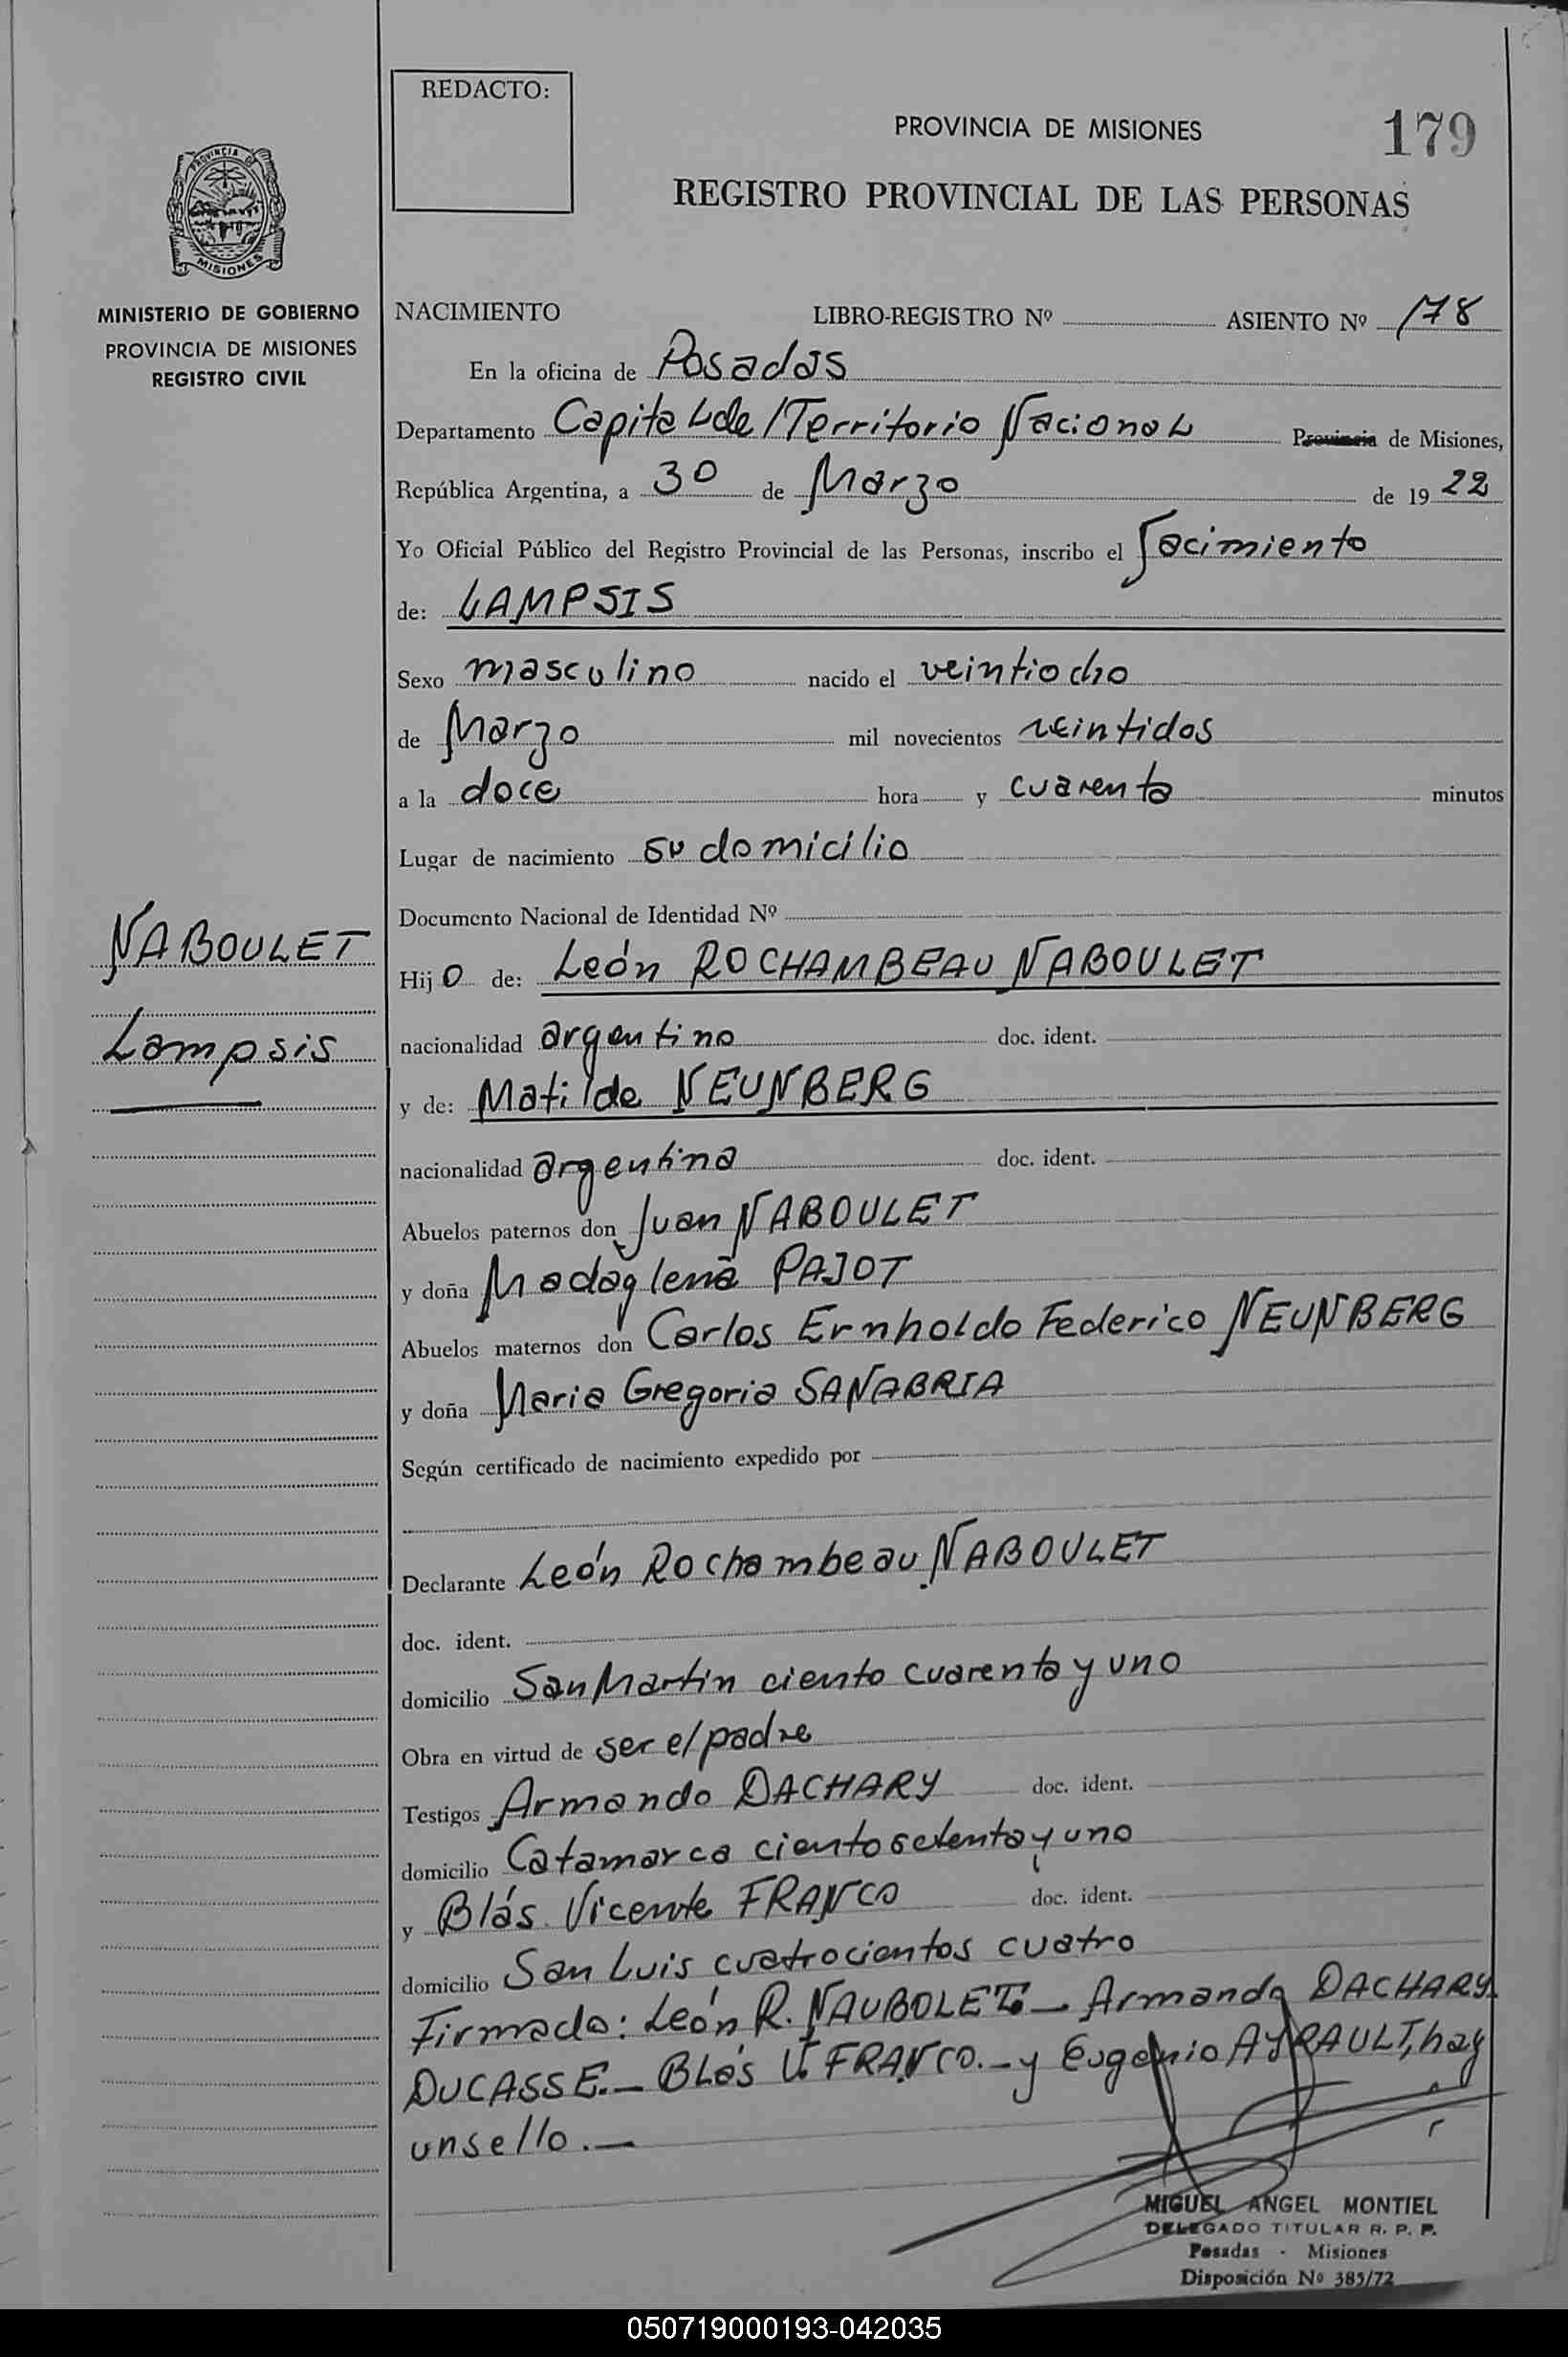 REDACTO:
PROVINCIA DE MISIONES
179
REGISTRO PROVINCIAL DE LAS PERSONAS
PROVINCIA DE
MISIONES
MINISTERIO DE GOBIERNO
PROVINCIA DE MISIONES
REGISTRO CIVIL
NACIMIENTO LIBRO-REGISTRO Nº ASIENTO Nº 178
En la oficina de Posadas
Departamento Capital del Territorio Nacional Provincia de Misiones,
República Argentina, a 30 de Marzo de 1922
Yo Oficial Público del Registro Provincial de las Personas, inscribo el Nacimiento
de: LAMPSIS
Sexo masculino nacido el veintiocho
de Marzo mil novecientos veintidos
a la doce hora y cuarenta minutos
Lugar de nacimiento su domicilio
Documento Nacional de Identidad Nº
NABOULET
Lampsis
Hijo de: León ROCHAMBEAU NABOULET
nacionalidad argentino doc. ident.
y de: Matilde NEUNBERG
nacionalidad argentina doc. ident.
Abuelos paternos don Juan NABOULET
y doña Madaglena PAJOT
Abuelos maternos don Carlos Ernholdo Federico NEUNBERG
y doña Maria Gregoria SANABRIA
Según certificado de nacimiento expedido por
Declarante León Rochambeau NABOULET
doc. ident.
domicilio San Martin ciento cuarenta y uno
Obra en virtud de ser el padre
Testigos Armando DACHARY doc. ident.
domicilio Catamarca ciento setenta y uno
y Blás Vicente FRANCO doc. ident.
domicilio San Luis cuatrocientos cuatro
Firmado: León R. NAUBOLET.- Armando DACHARY
DUCASSE.- Blás V. FRANCO.- y Eugenio AYRAULT, hay
un sello.-
MIGUEL ANGEL MONTIEL
DELEGADO TITULAR R. P. P.
Posadas - Misiones
Disposición Nº 385/72
050719000193-042035